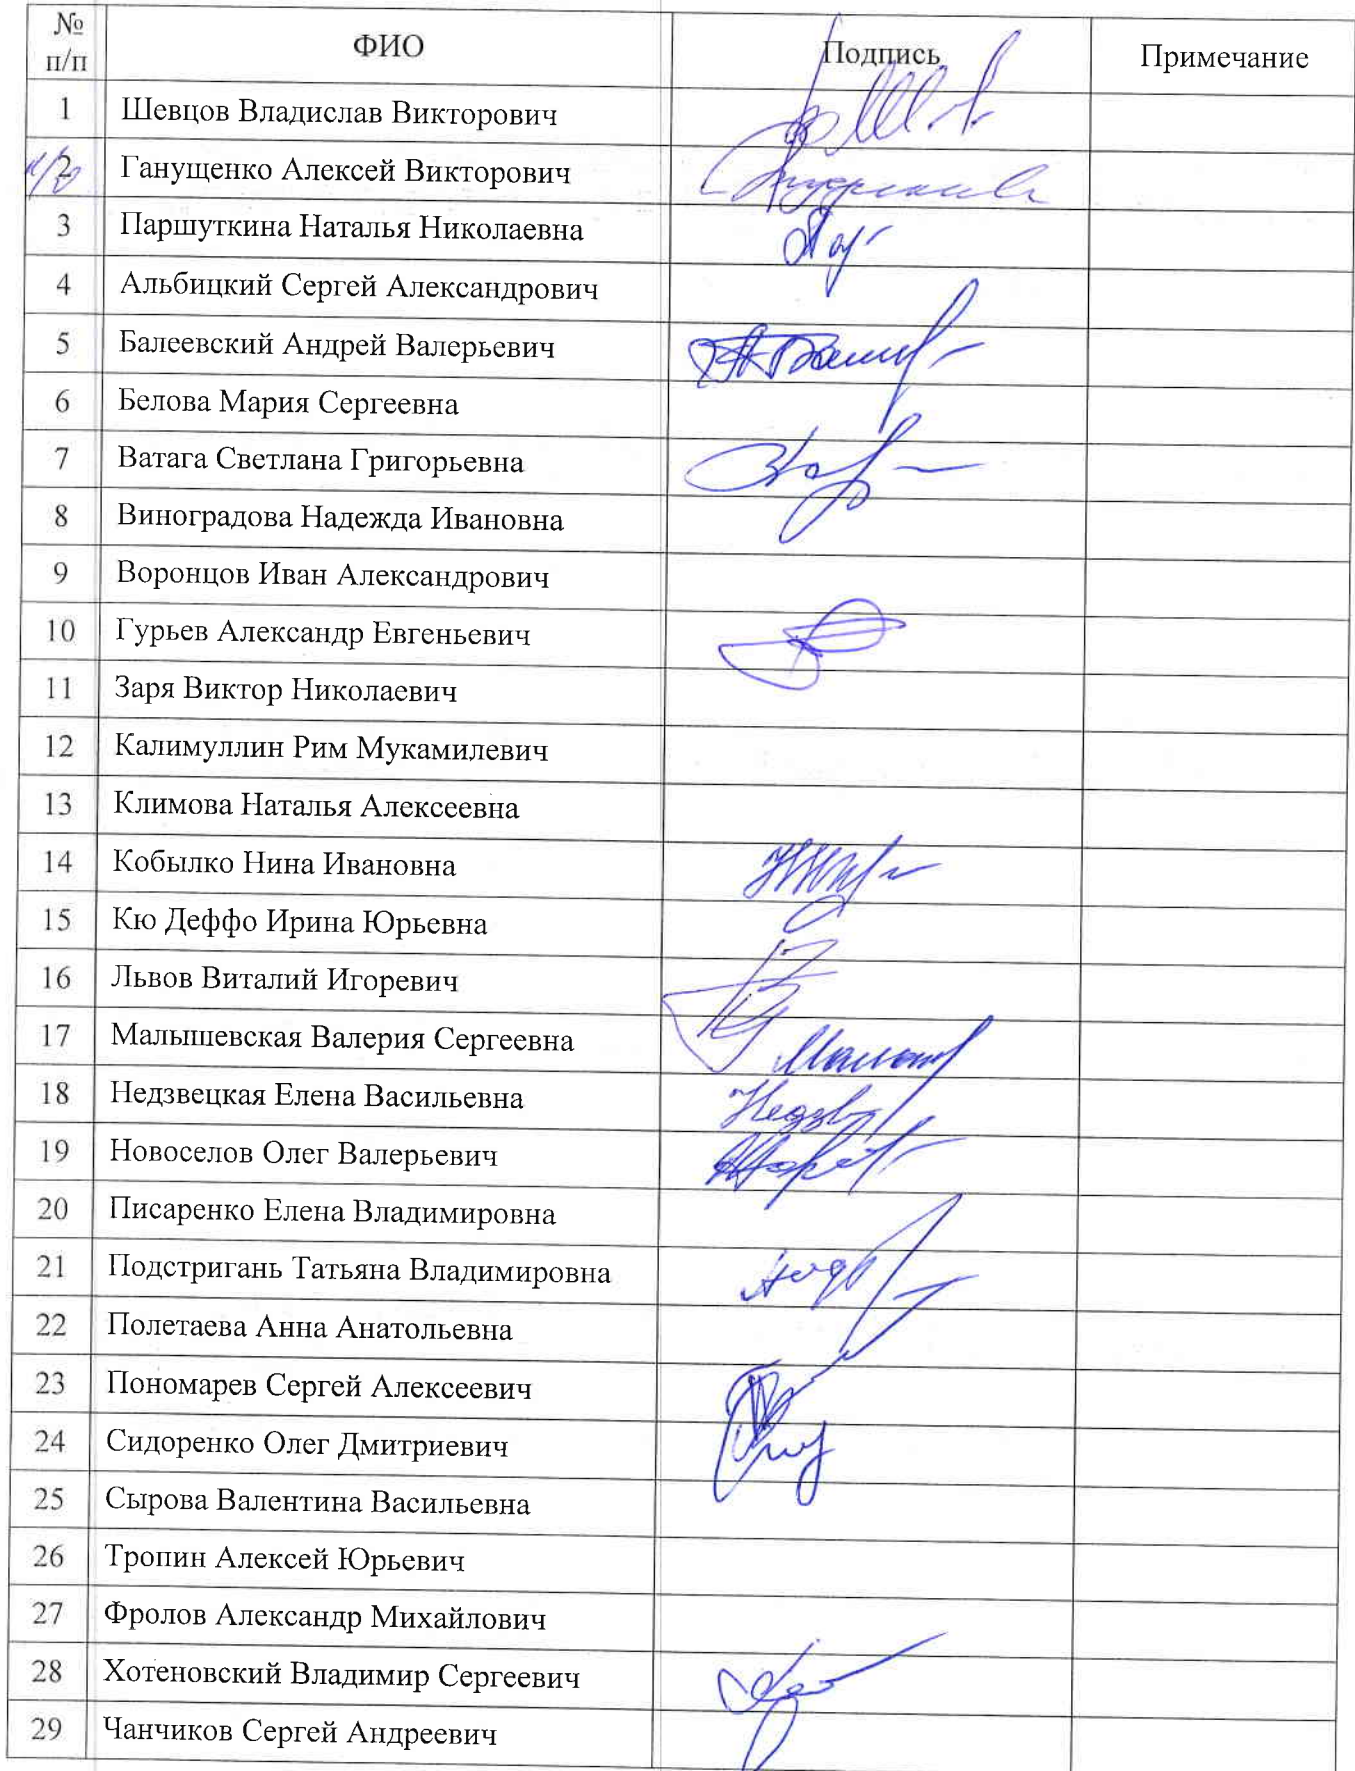 № п/п ФИО Подпись Примечание
1 Шевцов Владислав Викторович
2 Ганущенко Алексей Викторович
3 Паршуткина Наталья Николаевна
4 Альбицкий Сергей Александрович
5 Балеевский Андрей Валерьевич
6 Белова Мария Сергеевна
7 Ватага Светлана Григорьевна
8 Виноградова Надежда Ивановна
9 Воронцов Иван Александрович
10 Гурьев Александр Евгеньевич
11 Заря Виктор Николаевич
12 Калимуллин Рим Мукамилевич
13 Климова Наталья Алексеевна
14 Кобылко Нина Ивановна
15 Кю Деффо Ирина Юрьевна
16 Львов Виталий Игоревич
17 Малышевская Валерия Сергеевна
18 Недзвецкая Елена Васильевна
19 Новоселов Олег Валерьевич
20 Писаренко Елена Владимировна
21 Подстригань Татьяна Владимировна
22 Полетаева Анна Анатольевна
23 Пономарев Сергей Алексеевич
24 Сидоренко Олег Дмитриевич
25 Сырова Валентина Васильевна
26 Тропин Алексей Юрьевич
27 Фролов Александр Михайлович
28 Хотеновский Владимир Сергеевич
29 Чанчиков Сергей Андреевич